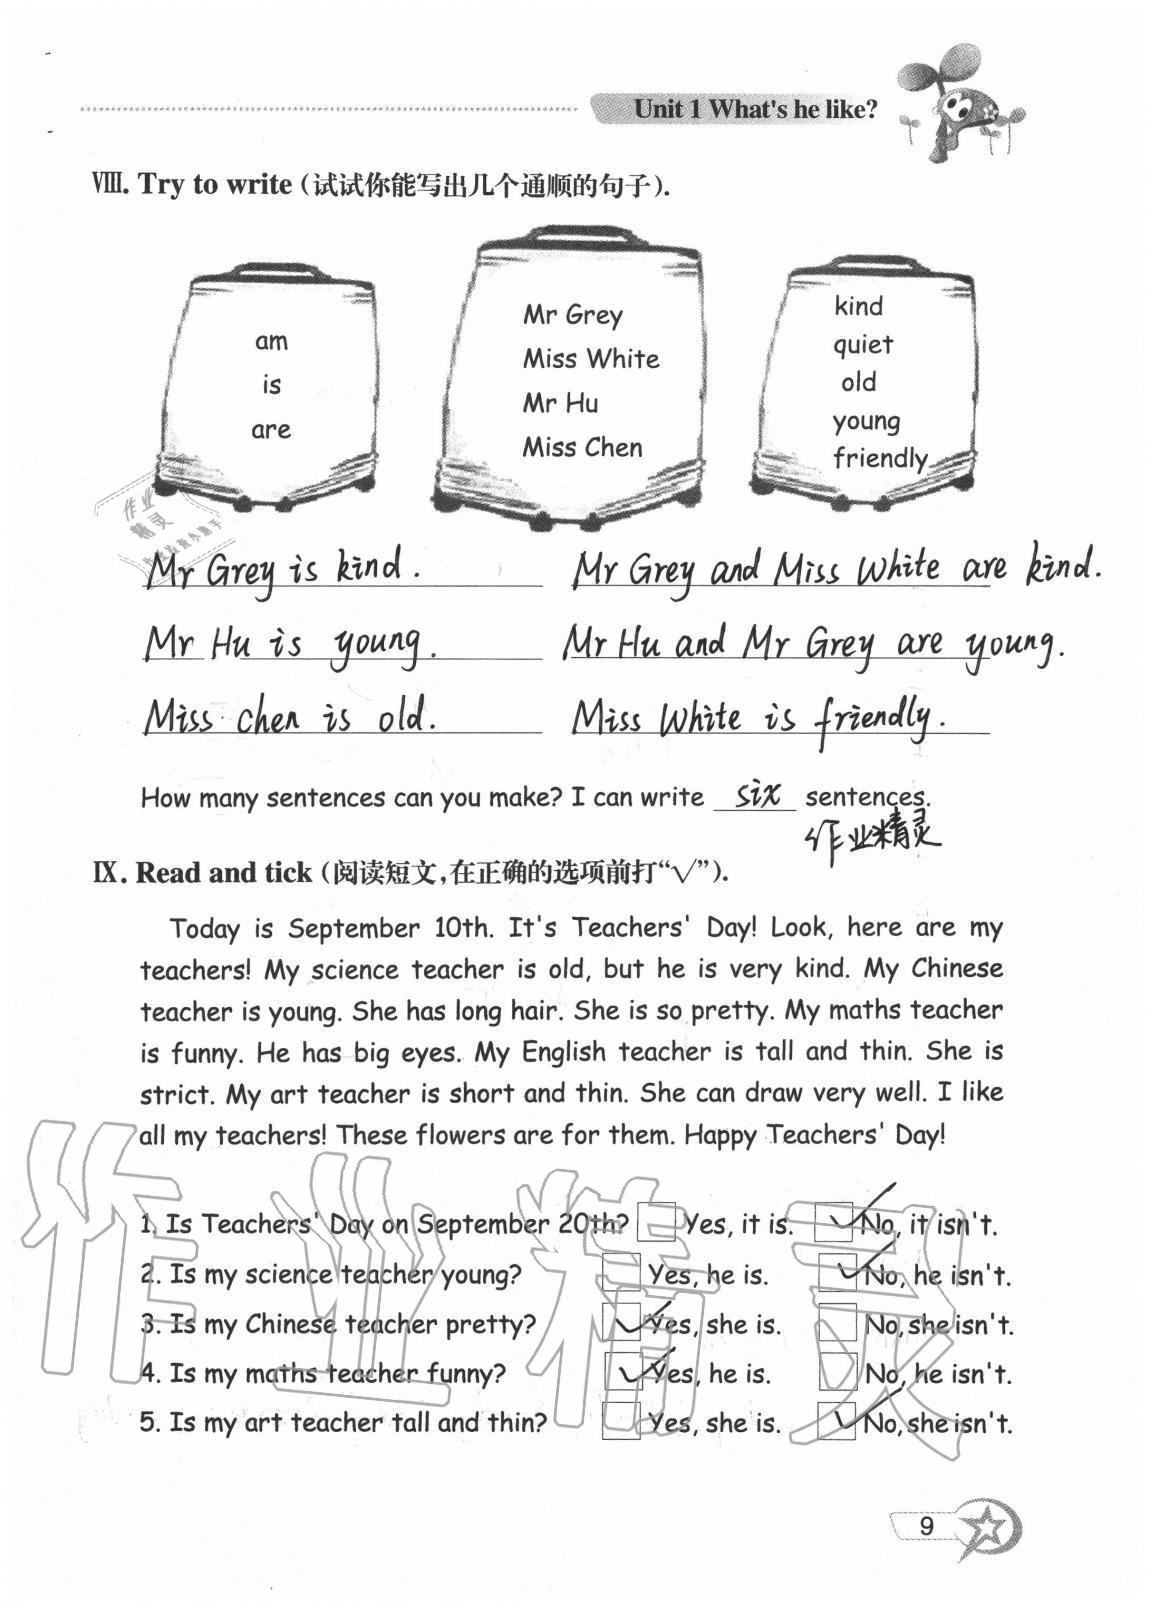 Unit 1 What's he like?
Ⅷ. Try to write (试试你能写出几个通顺的句子).
am
is
are
Mr Grey
Miss White
Mr Hu
Miss Chen
kind
quiet
old
young
friendly
作业
精灵
Mr Grey is kind.
Mr Grey and Miss White are kind.
Mr Hu is young.
Mr Hu and Mr Grey are young.
Miss chen is old.
Miss White is friendly.
How many sentences can you make? I can write six sentences.
作业精灵
Ⅸ. Read and tick (阅读短文,在正确的选项前打“√”).
Today is September 10th. It's Teachers' Day! Look, here are my
teachers! My science teacher is old, but he is very kind. My Chinese
teacher is young. She has long hair. She is so pretty. My maths teacher
is funny. He has big eyes. My English teacher is tall and thin. She is
strict. My art teacher is short and thin. She can draw very well. I like
all my teachers! These flowers are for them. Happy Teachers' Day!
1. Is Teachers' Day on September 20th? Yes, it is. ✓ No, it isn't.
2. Is my science teacher young? Yes, he is. ✓ No, he isn't.
3. Is my Chinese teacher pretty? ✓ Yes, she is. No, she isn't.
4. Is my maths teacher funny? ✓ Yes, he is. No, he isn't.
5. Is my art teacher tall and thin? Yes, she is. ✓ No, she isn't.
作业精灵
9